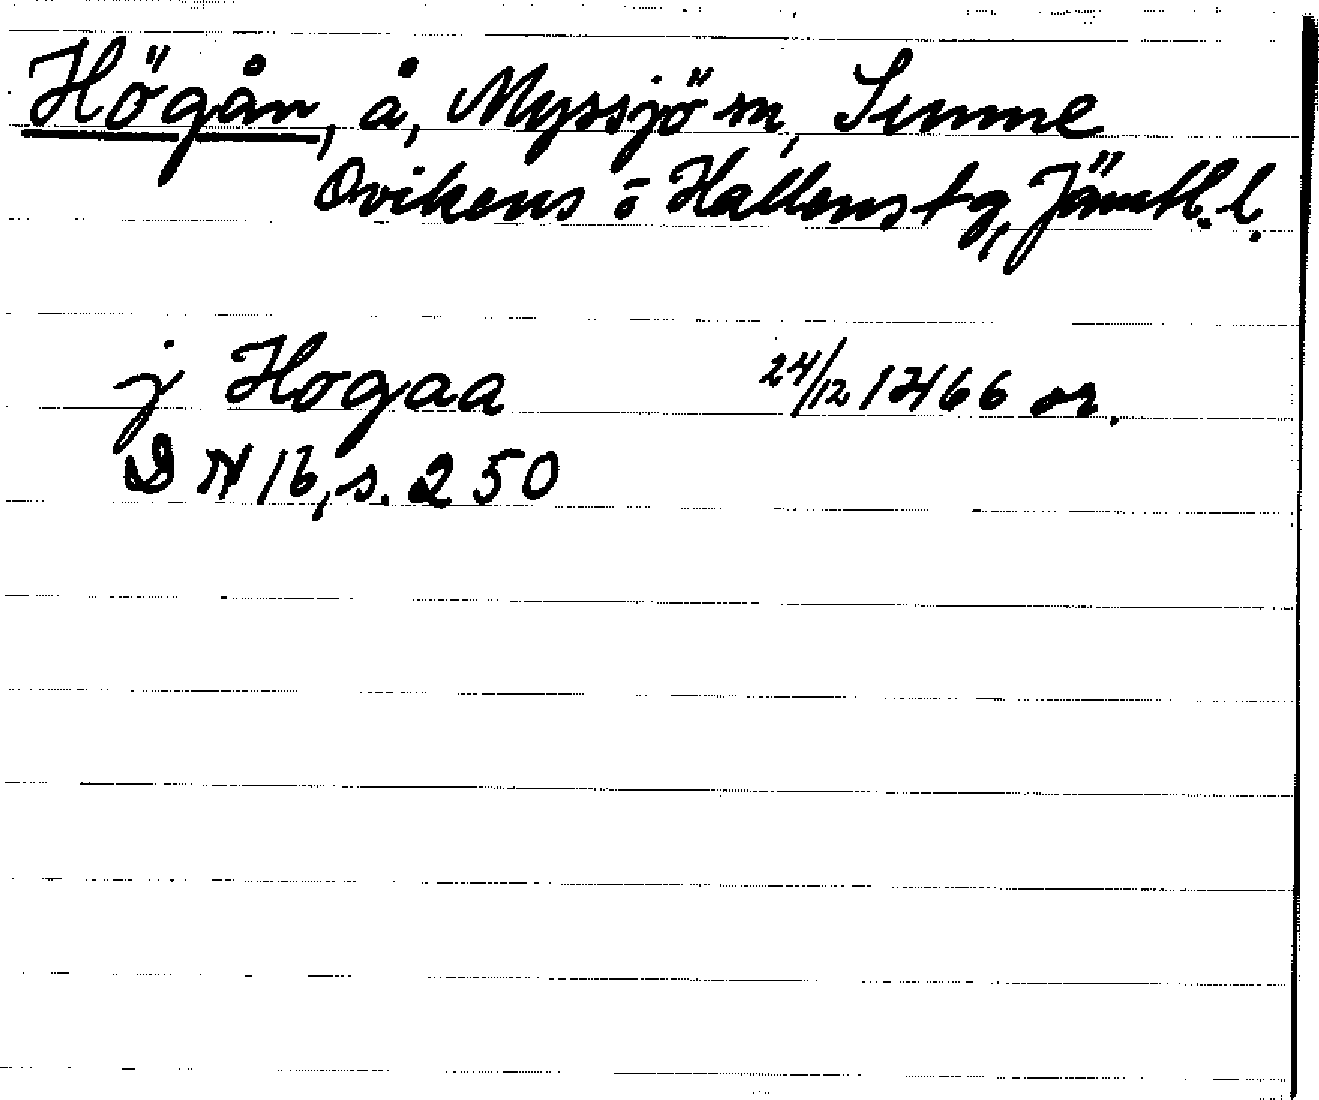 Högån, å, Myssjö m, Sunne
Ovikens o Hallens tg, Jämtl. l.
j Hogaa 24/12 1466 or.
DN 16, s. 250